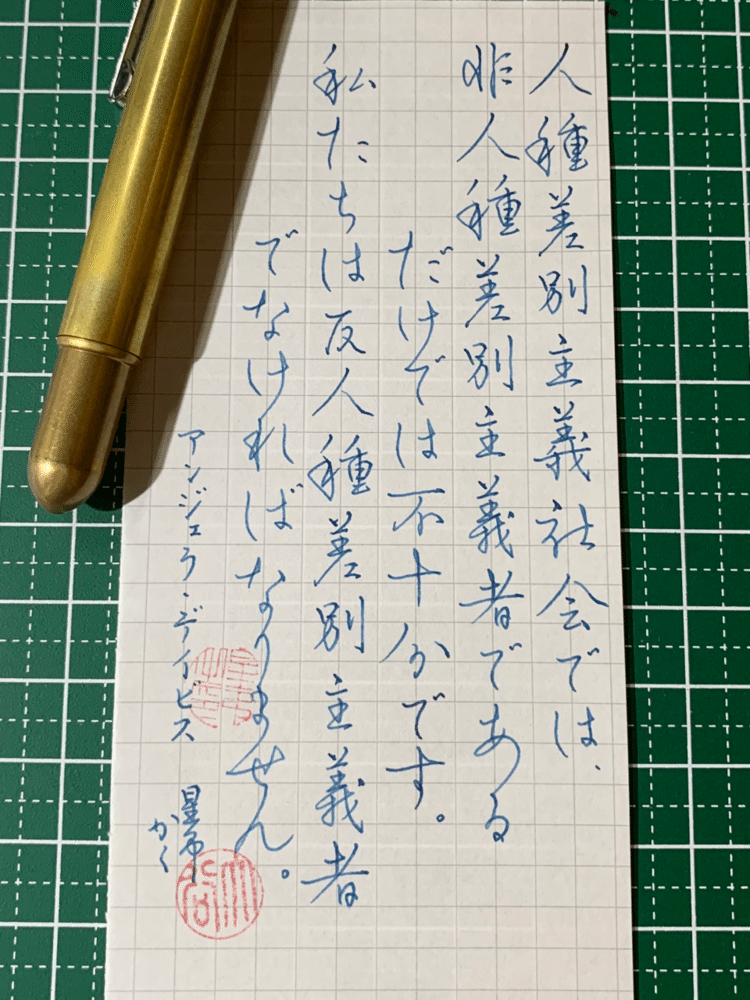 人種差別主義社会では、
非人種差別主義者である
だけでは不十分です。
私たちは反人種差別主義者
でなければなりません。
アンジェラ・デイビス
かく